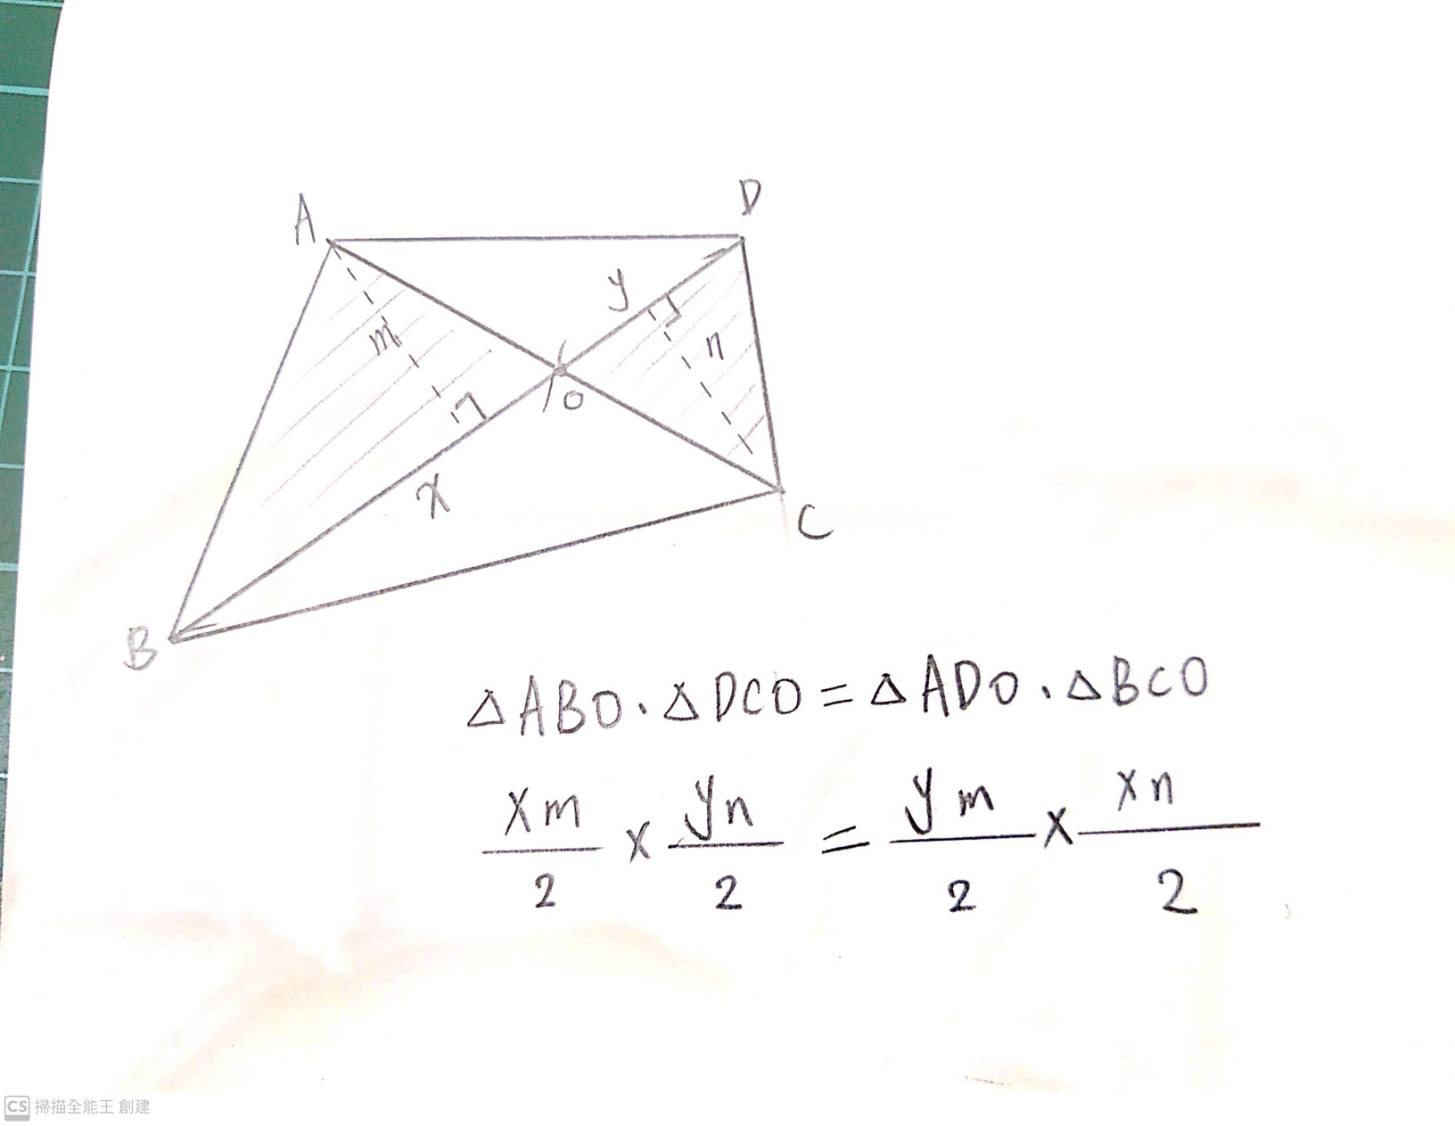 A
D
y
m
n
O
x
C
B
△ABO·△DCO=△ADO·△BCO
xm/2 × yn/2 = ym/2 × xn/2
CS 掃描全能王 創建